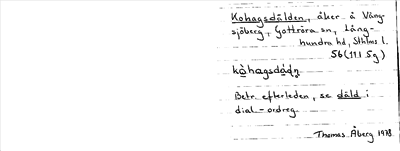 Kohagsdälden, åker å Väng-
sjöberg, Gottröra sn, Lång-
hundra hd, Sthlms l.
56 (11I 5g)
kòhagsdä̀dn
Betr. efterleden, se däld i
dial-ordreg.
Thomas Åberg 1978